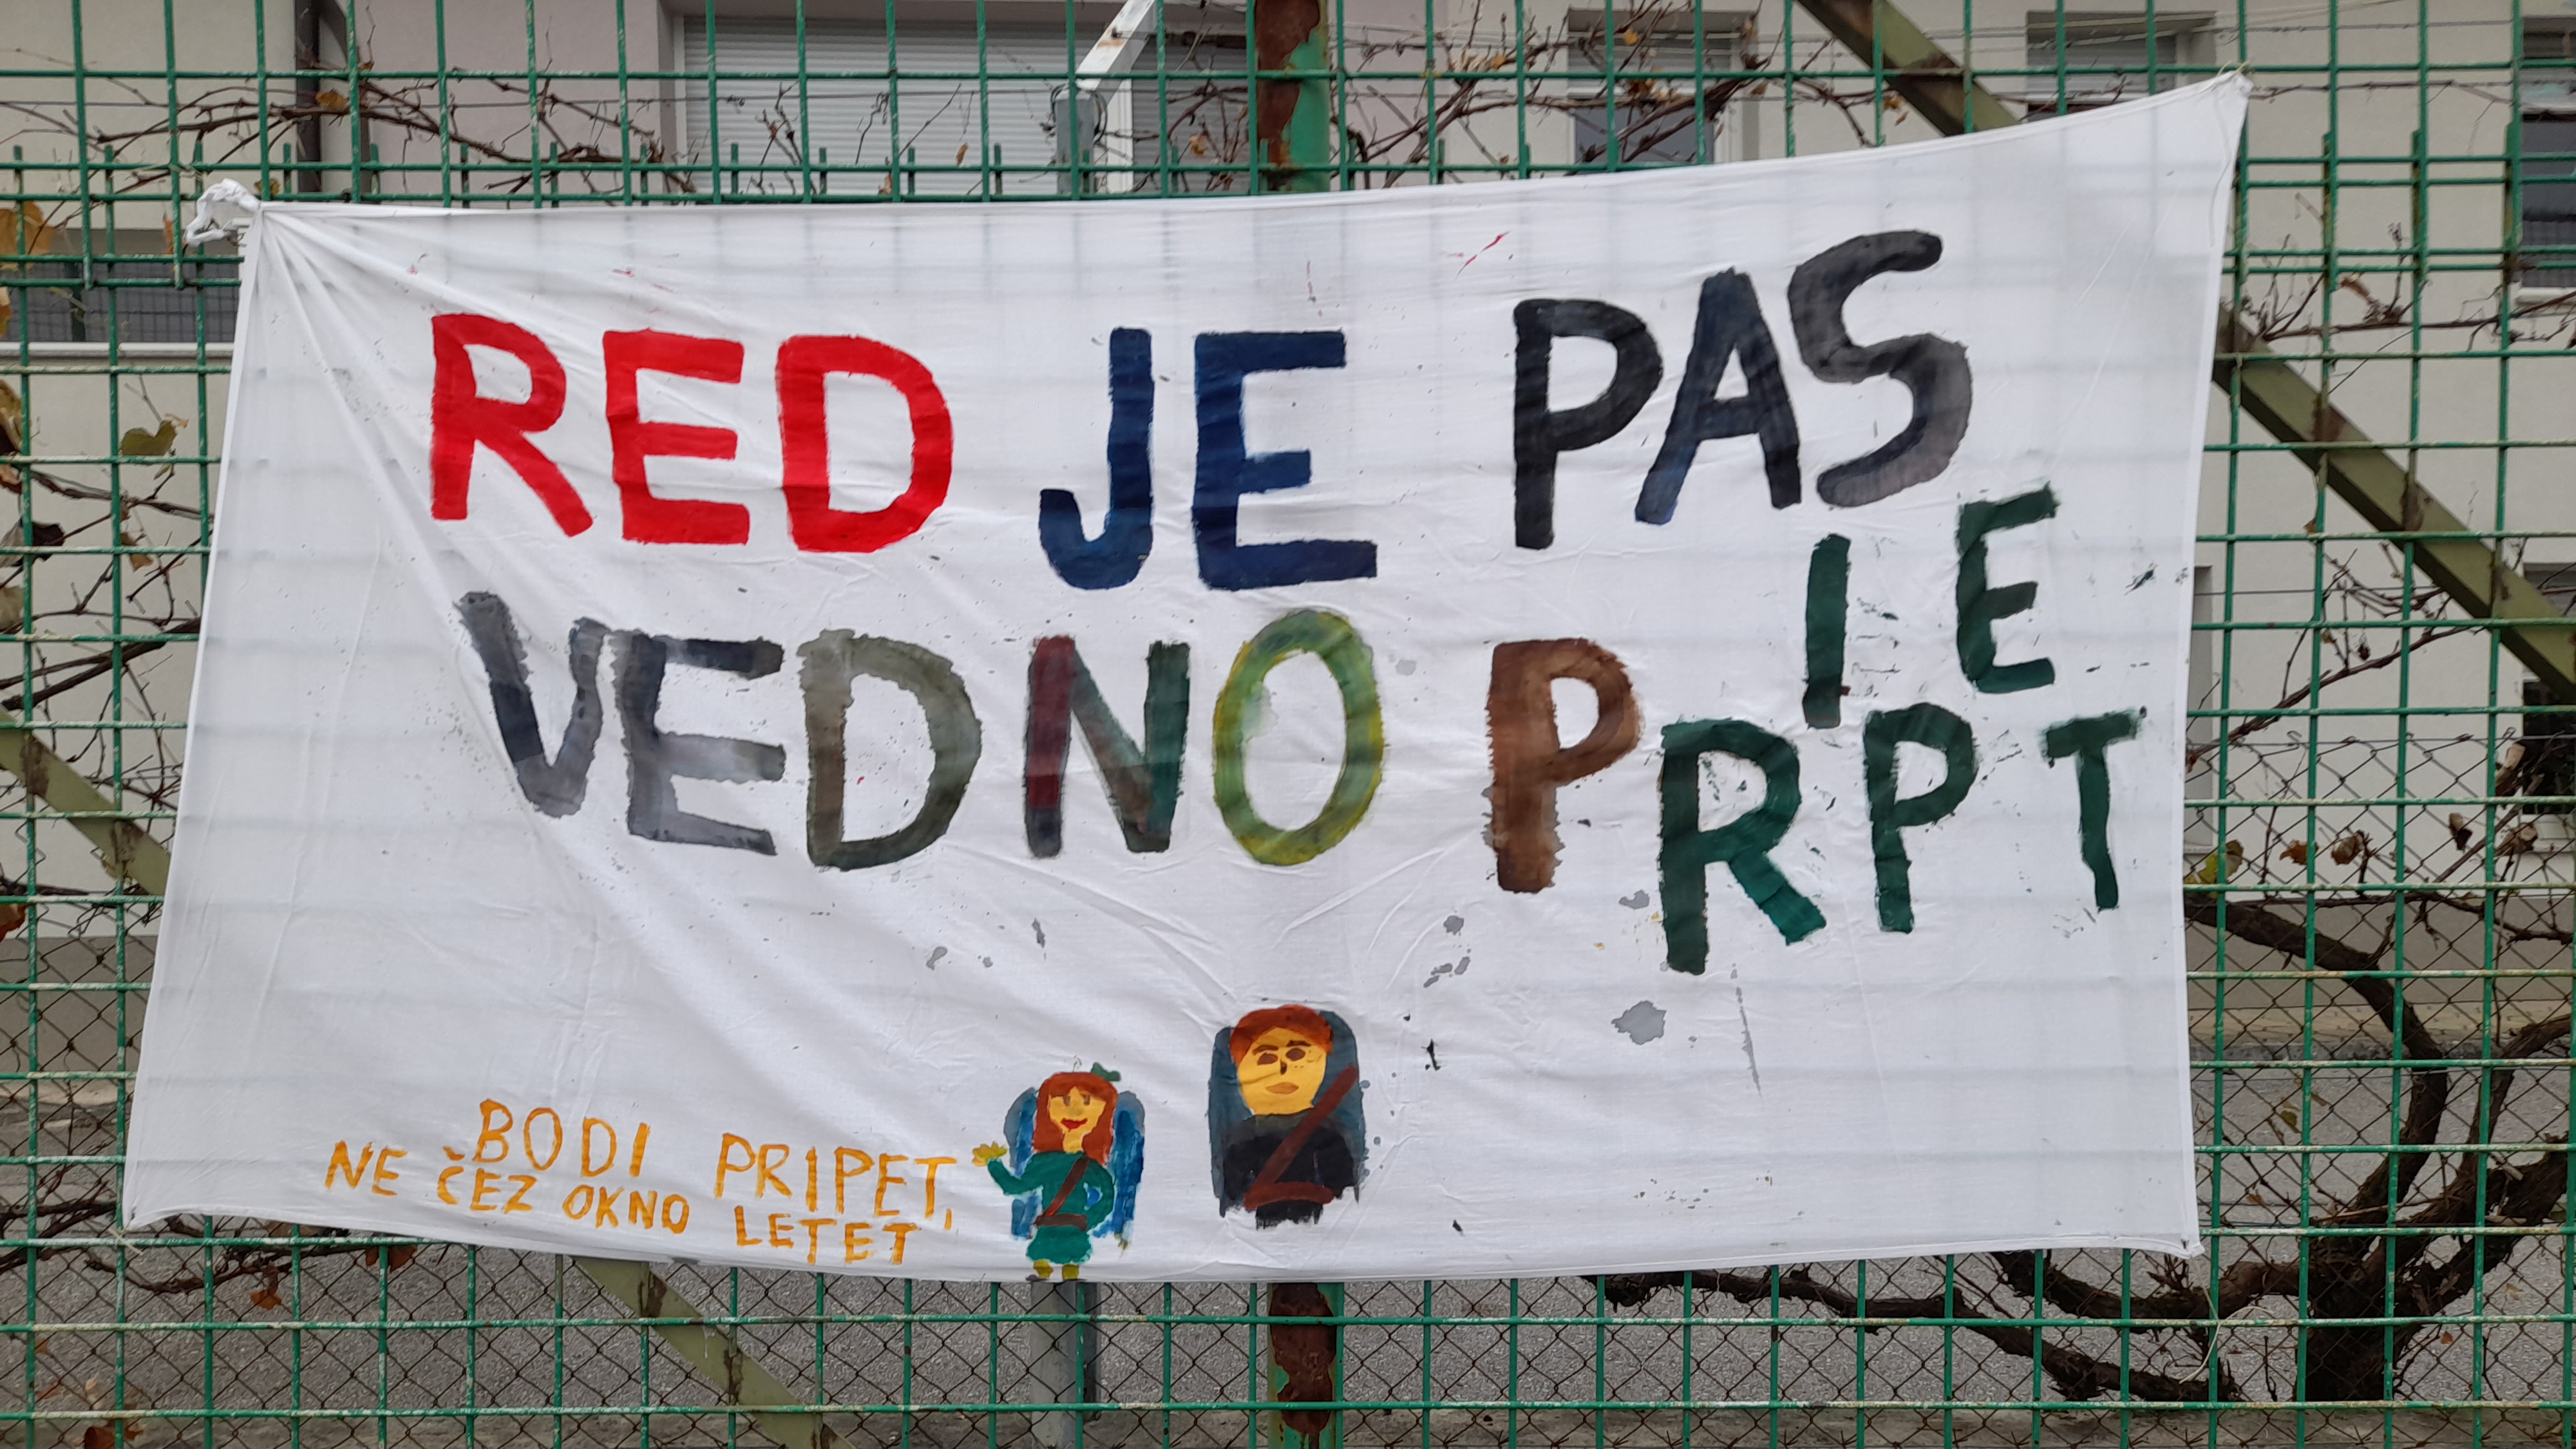 RED JE PAS
VEDNO PRIPET
BODI PRIPET,
NE ČEZ OKNO LETET